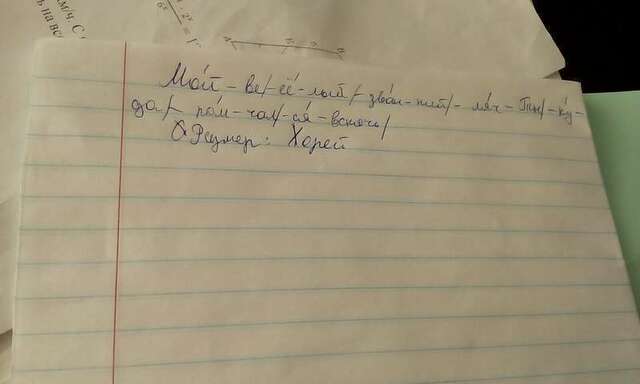 км/ч. С
ь на вс
Мой-ве/-сё-лый/звон-кий/-мяч-Ты/-ку-
да/пом-чал/-ся-вскачь/
Размер: Хорей